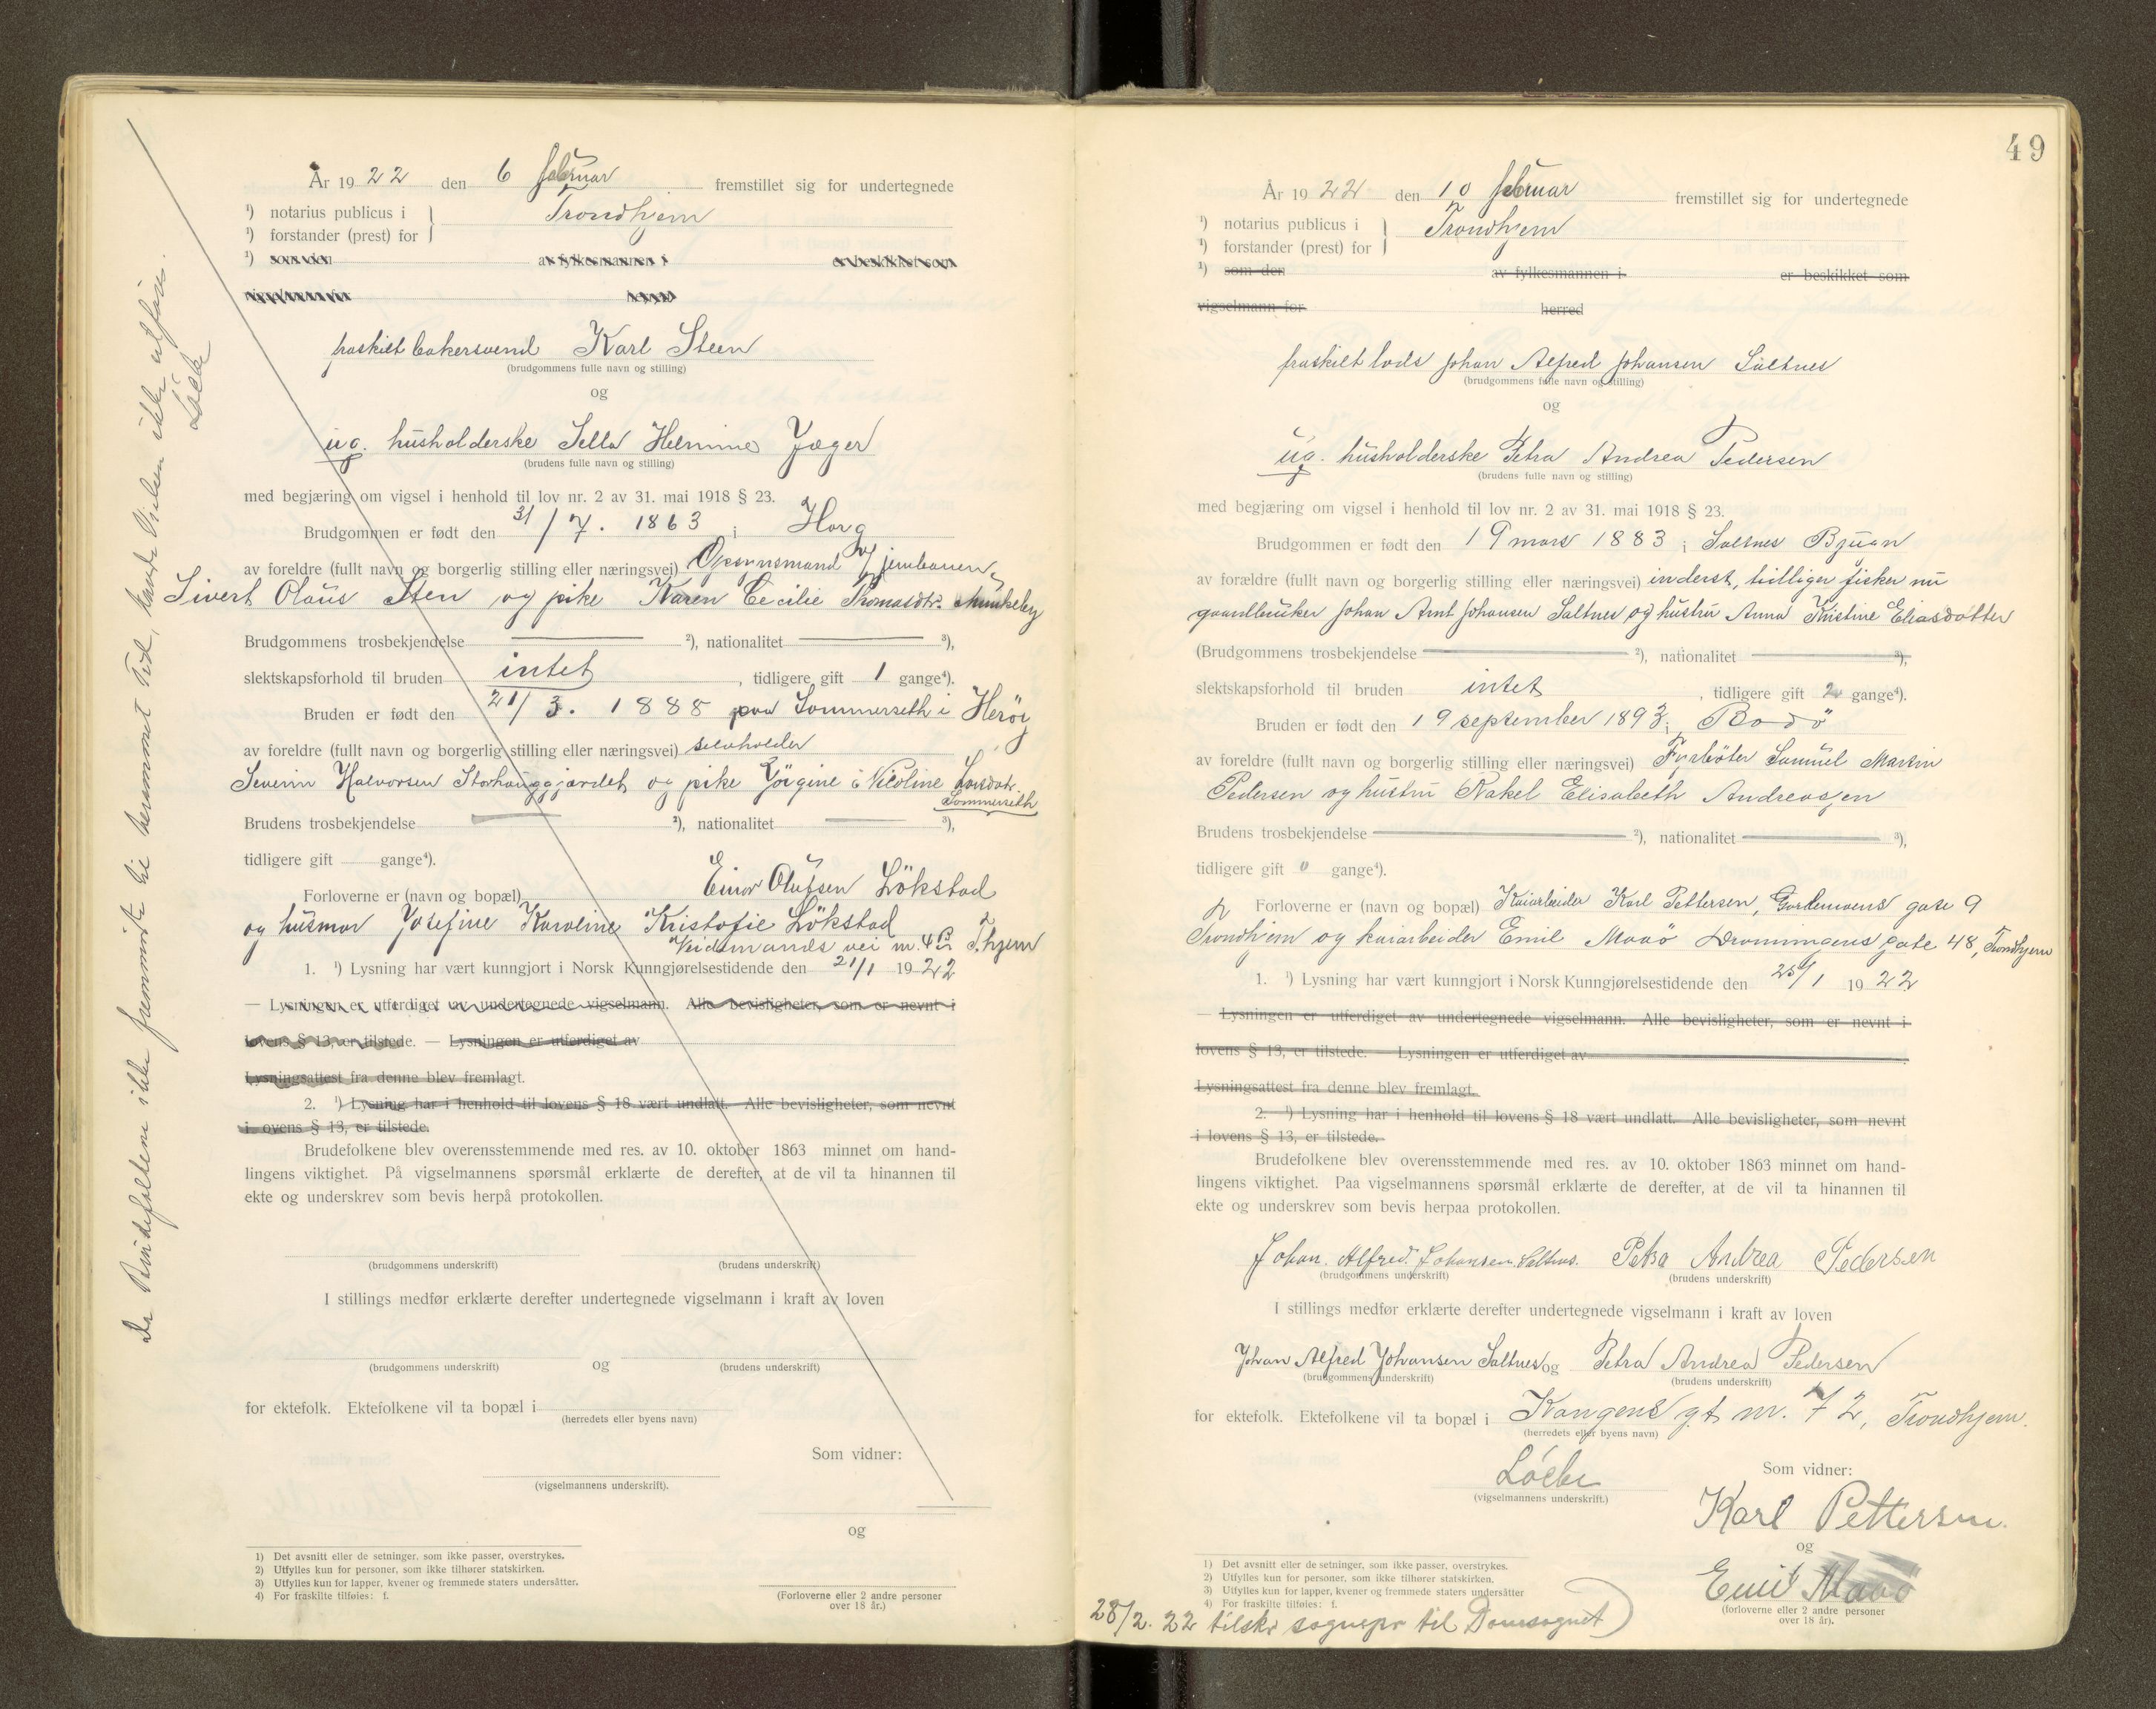 År 1922 den 6 februar fremstillet sig for undertegnede
¹) notarius publicus i } Trondhjem
¹) forstander (prest) for
¹) som den av fylkesmannen i er beskikket som
vigselmann for herred
fraskilt bakersvend Karl Steen
(brudgommens fulle navn og stilling)
og
ug. husholderske Sella Helmine Jæger
(brudens fulle navn og stilling)
med begjæring om vigsel i henhold til lov nr. 2 av 31. mai 1918 § 23.
Brudgommen er født den 31/7. 1863 i Horg
av foreldre (fullt navn og borgerlig stilling eller næringsvei) Opsynsmand v/ jernbanen
Sivert Olaus Sten og pike Karen Cecilie Thomasdtr. Munkeby
Brudgommens trosbekjendelse ²), nationalitet ³),
slektskapsforhold til bruden intet, tidligere gift 1 gange⁴).
Bruden er født den 21/3. 1888 paa Sommerseth i Herøy
av foreldre (fullt navn og borgerlig stilling eller næringsvei) selvholder
Severin Halvorsen Storhauggjærdet og pike Jørgine Nicoline Larsdatr.
Sommerseth
Brudens trosbekjendelse ²), nationalitet ³),
tidligere gift gange⁴).
Forloverne er (navn og bopæl) Einar Olufsen Lökstad
og husmor Josefine Karoline Kristofie Lökstad
Veidemands vei nr. 4 B Thjem
1. ¹) Lysning har vært kunngjort i Norsk Kunngjørelsestidende den 21/1 1922
— Lysningen er utferdiget av undertegnede vigselmann. Alle bevisligheter, som er nevnt i
lovens § 13, er tilstede. — Lysningen er utferdiget av
Lysningsattest fra denne blev fremlagt.
2. ¹) Lysning har i henhold til lovens § 18 vært undlatt. Alle bevisligheter, som nevnt
i lovens § 13, er tilstede.
Brudefolkene blev overensstemmende med res. av 10. oktober 1863 minnet om hand-
lingens viktighet. På vigselmannens spørsmål erklærte de derefter, at de vil ta hinannen til
ekte og underskrev som bevis herpå protokollen.
(brudgommens underskrift) (brudens underskrift)
I stillings medfør erklærte derefter undertegnede vigselmann i kraft av loven
og
(brudgommens underskrift) (brudens underskrift)
for ektefolk. Ektefolkene vil ta bopæl i
(herredets eller byens navn)
Som vidner:
(vigselmannens underskrift).
og
1) Det avsnitt eller de setninger, som ikke passer, overstrykes.
2) Utfylles kun for personer, som ikke tilhører statskirken.
3) Utfylles kun for lapper, kvener og fremmede staters undersåtter.
4) For fraskilte tilføies: f.
(Forloverne eller 2 andre personer
over 18 år.)
Da Brudefolkene ikke fremmötte til berammet Tid, kunde Vielsen ikke utføres.
Löcke
49
År 1922 den 10 februar fremstillet sig for undertegnede
¹) notarius publicus i } Trondhjem
¹) forstander (prest) for
¹) som den av fylkesmannen i er beskikket som
vigselmann for herred
fraskilt lods Johan Alfred Johansen Saltnes
(brudgommens fulle navn og stilling)
og
ug. husholderske Petra Andrea Pedersen
(brudens fulle navn og stilling)
med begjæring om vigsel i henhold til lov nr. 2 av 31. mai 1918 § 23.
Brudgommen er født den 19 mars 1883 i Saltnes Bjugn
av forældre (fullt navn og borgerlig stilling eller næringsvei) inderst, tidligere fisker nu
gaardbruker Johan Arnt Johansen Saltnes og hustru Anna Kristine Eliasdatter
(Brudgommens trosbekjendelse ²), nationalitet ³),
slektskapsforhold til bruden intet, tidligere gift 2 gange⁴).
Bruden er født den 19 september 1893 i Bodö
av foreldre (fullt navn og borgerlig stilling eller næringsvei) Fyrböter Samuel Martin
Pedersen og hustru Rakel Elisabeth Andreassen
Brudens trosbekjendelse ²), nationalitet ³),
tidligere gift 0 gange⁴).
Forloverne er (navn og bopæl) Kaiarbeider Karl Pettersen, gate 9
Trondhjem og kaiarbeider Emil Maaö Dronningens gate 48, Trondhjem
1. ¹) Lysning har vært kunngjort i Norsk Kunngjørelsestidende den 25/1 1922
— Lysningen er utferdiget av undertegnede vigselmann. Alle bevisligheter, som er nevnt i
lovens § 13, er tilstede. — Lysningen er utferdiget av
Lysningsattest fra denne blev fremlagt.
2. ¹) Lysning har i henhold til lovens § 18 vært undlatt. Alle bevisligheter, som nevnt
i lovens § 13, er tilstede.
Brudefolkene blev overensstemmende med res. av 10. oktober 1863 minnet om hand-
lingens viktighet. Paa vigselmannens spørsmål erklærte de derefter, at de vil ta hinannen til
ekte og underskrev som bevis herpaa protokollen.
Johan. Alfred. Johansen. Saltnes. Petra Andrea Pedersen
(brudgommens underskrift) (brudens underskrift)
I stillings medfør erklærte derefter undertegnede vigselmann i kraft av loven
Johan Alfred Johansen Saltnes og Petra Andrea Pedersen
(brudgommens underskrift) (brudens underskrift)
for ektefolk. Ektefolkene vil ta bopæl i Kongens gt nr. 72, Trondhjem.
(herredets eller byens navn)
Löcke
(vigselmannens underskrift.)
Som vidner:
Karl Pettersen.
og
Emil Maaö
(forloverne eller 2 andre personer
over 18 år).
1) Det avsnitt eller de setninger, som ikke passer, overstrykes.
2) Utfylles kun for personer, som ikke tilhører statskirken.
3) Utfylles kun for lapper, kvener og fremmede staters undersåtter
4) For fraskilte tilføies: f.
28/2. 22 tilskr sognepr til Domsognet